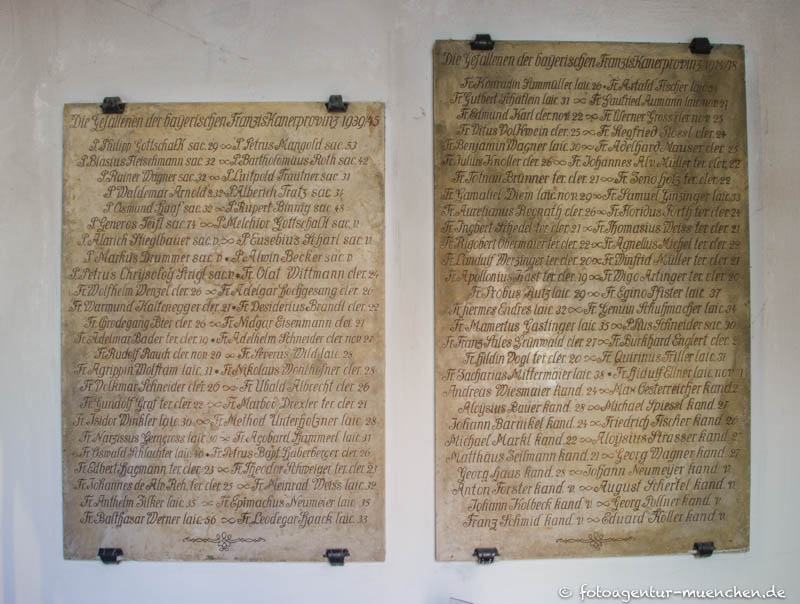 Die Gefallenen der bayerischen Franziskanerprovinz 1939/45
P. Philipp Gottschalk sac. 29 ∞ P. Petrus Mangold sac. 53
P. Blasius Fleischmann sac. 32 ∞ P. Bartholomäus Roth sac. 42
P. Rainer Wagner sac. 32 ∞ P. Luitpold Trautner sac. 31
P. Waldemar Arnold s. 32 P. Alberich Tratz sac. 34
P. Osmund Haaf sac. 32 ∞ P. Rupert Binnig sac. 48
P. Generos Feifl sac. 74 ∞ P. Melchior Gottschalk sac. v.
P. Alarich Stieglbauer sac. v. ∞ P. Eusebius Scharl sac. v.
P. Markus Drummer sac. v • P. Alwin Becker sac. v
P. Petrus Chrysolog Stigl sac. v • Fr. Olaf Wittmann cler. 24
Fr. Wolfhelm Wenzel cler. 26 ∞ Fr. Adelgar Hochgesang cler. 26
Fr. Warmund Kaltenegger cler. 21 • Fr. Desiderius Brandl cler. 22
Fr. Chrodegang Bier cler. 26 ∞ Fr. Nidgar Eisenmann cler. 21
Fr. Adelmar Bader ter. cler. 19 • Fr. Adelhelm Schneider cler. nov 27
Fr. Rudolf Rauch cler. nov 20 ∞ Fr. Verenus Wild laic. 28
Fr. Agrippin Wolfram laic. 11 • Fr. Nikolaus Wohlhöfner cler. 28
Fr. Volkmar Schneider cler. 26 ∞ Fr. Ubald Albrecht cler. 26
Fr. Gundolf Graf ter. cler. 22 ∞ Fr. Marbod Drexler ter. cler. 21
Fr. Isidor Winkler laic. 30 ∞ Fr. Method Unterholzner laic. 28
Fr. Narzissus Gengross laic. 30 ∞ Fr. Agobard Hammerl laic. 31
Fr. Oswald Schlachter laic. 30 • Fr. Petrus Bapt. Haberberger cler. 26
Fr. Edbert Hagmann ter. cler. 23 ∞ Fr. Theodor Schweiger ter. cler. 21
Fr. Johannes de Alv. Reh. ter. cler. 25 ∞ Fr. Meinrad Weiss laic. 32
Fr. Anthelm Zilker laic. 35 ∞ Fr. Epimachus Neumeier laic. 35
Fr. Balthasar Werner laic. 56 ∞ Fr. Leodegar Haack laic. 33
Die Gefallenen der bayerischen Franziskanerprovinz 1914/18
Fr. Konradin Summüller laic. 26 • Fr. Astald Fischer laic.
Fr. Gutbert Schätlen laic. 31 ∞ Fr. Gaufried Aumann laic. nov. 21
Fr. Edmund Karl cler. nov. 22 ∞ Fr. Werner Gross cler. nov. 23
Fr. Vitus Volkwein cler. 25 ∞ Fr. Siegfried Hoesl cler. 24
Fr. Benjamin Wagner laic. 30 ∞ Fr. Adelhard Mauser cler. 25
Fr. Julius Knoller cler. 26 ∞ Fr. Johannes Alv. Müller ter. cler. 22
Fr. Totnan Brünner ter. cler. 21 ∞ Fr. Zeno Holz ter. cler. 22
Fr. Gamaliel Diem laic. nov. 29 ∞ Fr. Samuel Ginzinger laic. 33
Fr. Aurelianus Regnath cler. 26 ∞ Fr. Floridus Forth ter. cler. 24
Fr. Ingbert Schedel ter. cler. 21 ∞ Fr. Thomasius Weiss ter. cler. 21
Fr. Rigobert Obermaier ter. cler. 22 ∞ Fr. Agnellus Michel ter. cler. 22
Fr. Landulf Merzinger ter. cler. 20 ∞ Fr. Winfrid Müller ter. cler. 21
Fr. Apollonius Fast ter. cler. 19 ∞ Fr. Wigo Arlinger ter. cler. 20
Fr. Probus Kutz laic. 29 ∞ Fr. Egino Pfister laic. 37
Fr. Hermes Endres laic. 32 ∞ Fr. Genuin Schussmacher laic. 34
Fr. Mamertus Gastinger laic. 35 ∞ P. Pius Schneider sac. 30
Fr. Franz Sales Grünwald cler. 27 ∞ Fr. Burkhard Englert cler. 2
Fr. Hildin Vogl ter. cler. 20 ∞ Fr. Quirinus Filler laic. 31
Fr. Zacharias Mittermaier laic. 38 • Fr. Hidulf Ellner laic. nov.
Andreas Wiesmaier kand. 24 ∞ Max Oesterreicher kand. 2
Aloysius Bauer kand. 28 ∞ Michael Spiessl kand. 27
Johann Barnikel kand. 24 ∞ Friedrich Fischer kand. 26
Michael Markl kand. 22 ∞ Aloysius Strasser kand. 27
Matthäus Zeilmann kand. 21 ∞ Georg Wagner kand. 27
Georg Haas kand. 28 ∞ Johann Neumeyer kand. v.
Anton Forster kand. v. ∞ August Schertel kand. v.
Johann Kolbeck kand. v ∞ Georg Zollner kand. v.
Franz Schmid kand. v. ∞ Eduard Köller kand. v.
© fotoagentur-muenchen.de